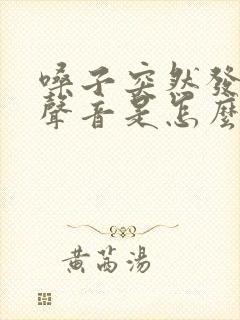 嗓子突然發
聲音是怎麼
黃芩湯